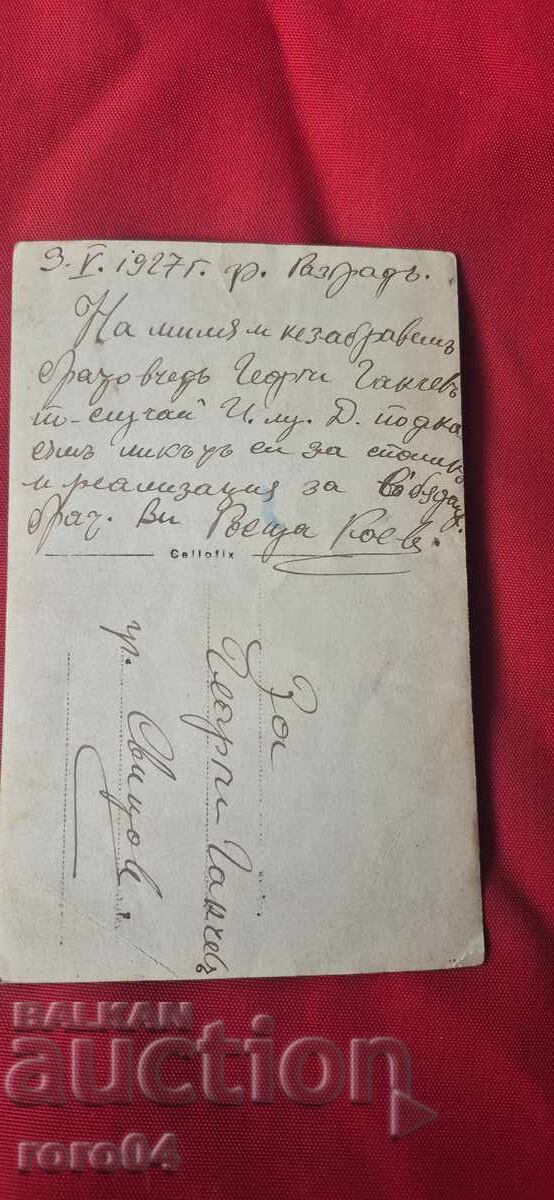 3. V. 1927 г. гр. Разградъ.
На милия и незабравимъ
братовчедъ Георги Ганчевъ
по-случай И. му. Д. подна
сямъ ликътъ си за споменъ
и реализация за
брат. Ви Коев.
Cellofix
За
Георги Ганчевъ
гр. Свищов
BALKAN
auction
roro04